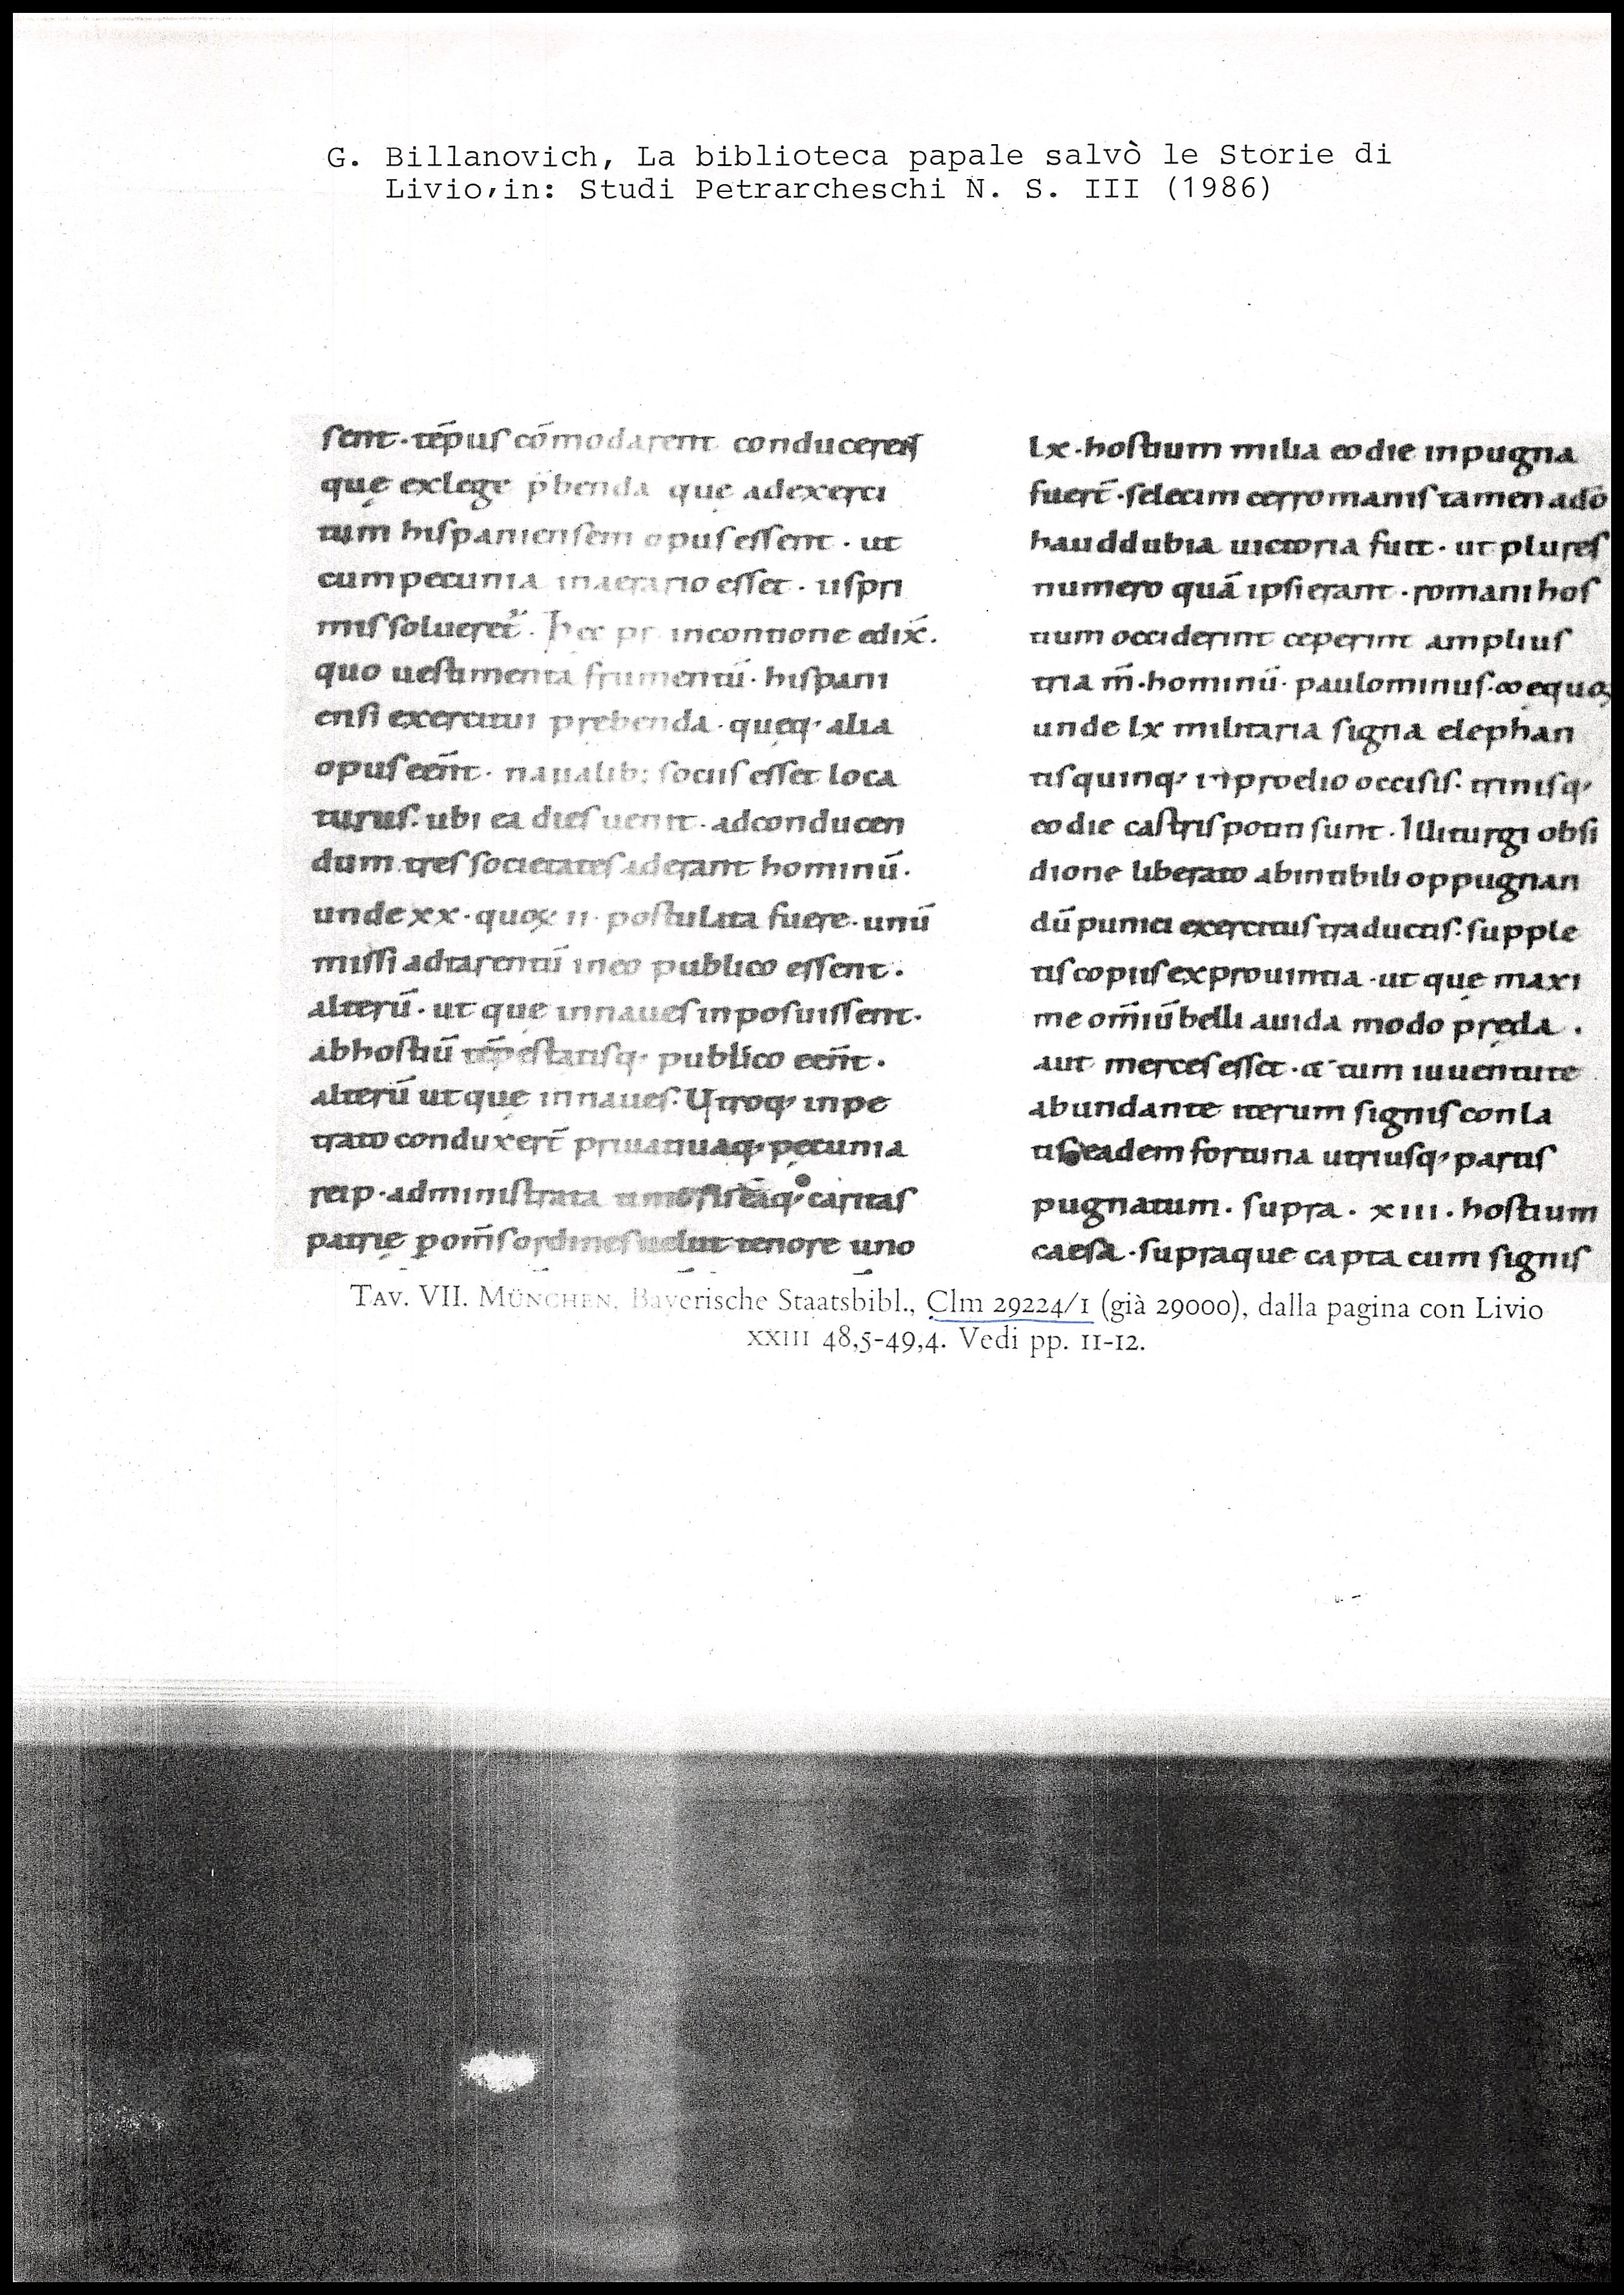 G. Billanovich, La biblioteca papale salvò le Storie di
Livio, in: Studi Petrarcheschi N. S. III (1986)
sent · tēpus cōmodarent conducerent
quę exlege p̄benda quę adexerci
tum hispaniensem opus essent · ut
cumpecunia inaerario esset · iispri
mis solueret᷑ · Hec pr̄ incontione edix̄.
quo uestimenta frumentū · hispani
ensi exercitui prębenda · quęq; alia
opus eēnt · naualib; sociis esset loca
turus · ubi ea dies uenit · adconducen
dum tres societates aderant hominū ·
unde xx · quoꝝ ii · postulata fuere · unū
missi adtarentū ineo publico essent ·
alterū · ut quę innaues inposuissent ·
abhostiū tēpestatisq; publico eēnt ·
alterū ut quę innaues · Utroq; inpe
trato conduxerī priuatiuaq; pecunia
reip · administrata caritas
patrię ꝑ om̄s ordines uelut tenore uno
lx · hostium milia eodie inpugna
fuerī · sedecim erromanis tamen adō
hauddubia uictoria fuit · ut plures
numero quā ipsi erant · romani hos
tium occiderint ceperint amplius
tria m̄ · hominū · paulominus · ꝏ equoꝝ
unde lx militaria signa elephan
tis quinq; inproelio occisis · trinisq;
eodie castris potiti sunt · Illiturgi obsi
dione liberato abintibili oppugnan
dū punici exercitus traductis · supple
tis copiis ex prouintia · ut quę maxi
me omīū belli auida modo pręda ·
aut merces esset · & tum iuuentute
abundante iterum signis conla
tis eadem fortuna utriusq; partis
pugnatum · supra · xiii · hostium
caesa · supraque capta cum signis
TAV. VII. MÜNCHEN, Bayerische Staatsbibl., Clm 29224/1 (già 29000), dalla pagina con Livio
XXIII 48,5-49,4. Vedi pp. 11-12.